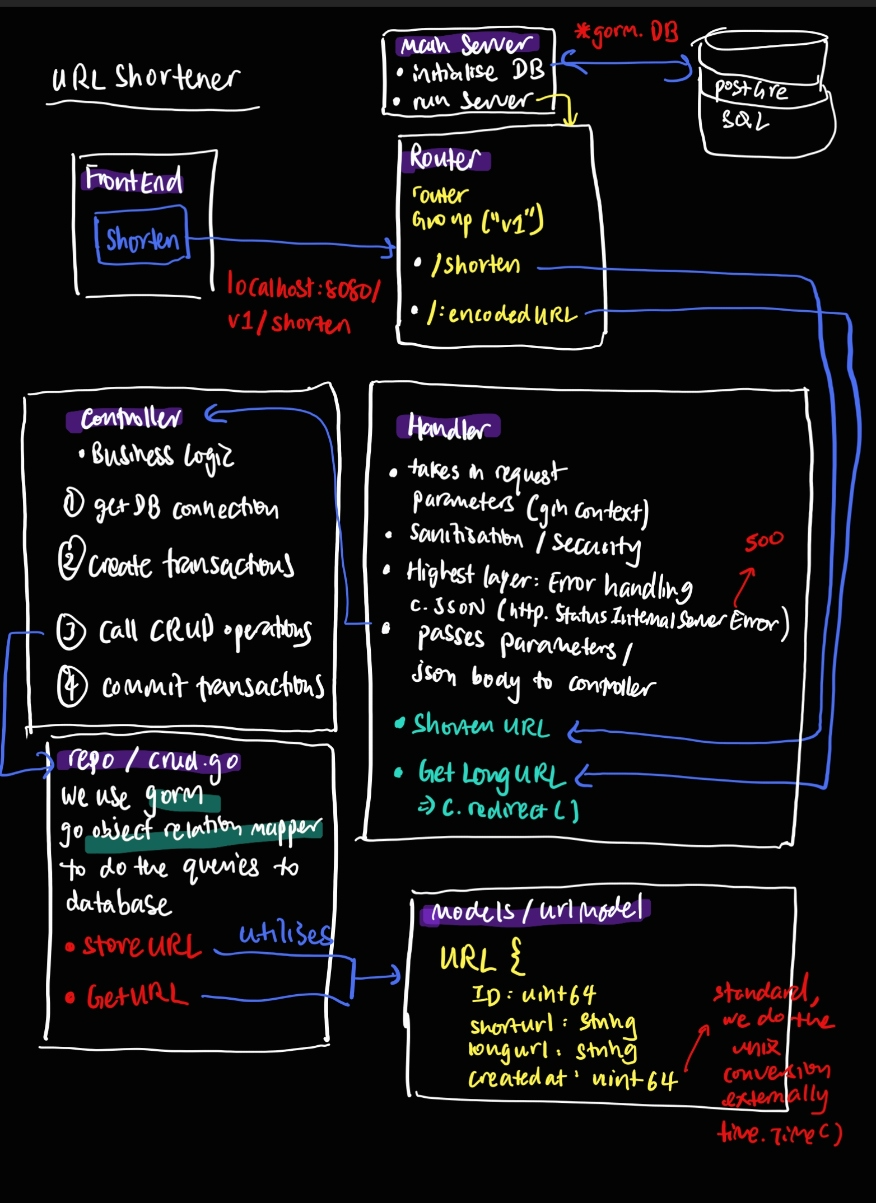 URL Shortener
Main Server
• initialise DB
• run server
*gorm.DB
postgre
SQL
FrontEnd
Shorten
localhost:8080/
v1/shorten
Router
router
Group ("v1")
• /shorten
• /:encodedURL
Controller
• Business Logic
① get DB connection
② create transactions
③ Call CRUD operations
④ commit transactions
Handler
• takes in request
parameters (gin context)
• Sanitisation / security
• Highest layer: Error handling
c.JSON (http.StatusInternalServerError)
500
• passes parameters/
json body to controller
• Shorten URL
• Get Long URL
=> c.redirect()
repo / crud.go
we use gorm
go object relation mapper
to do the queries to
database
• storeURL
• GetURL
utilises
models / urlmodel
URL {
ID: uint64
shorturl: string
longurl: string
createdat: uint64
standard,
we do the
unix
conversion
externally
time.Time()